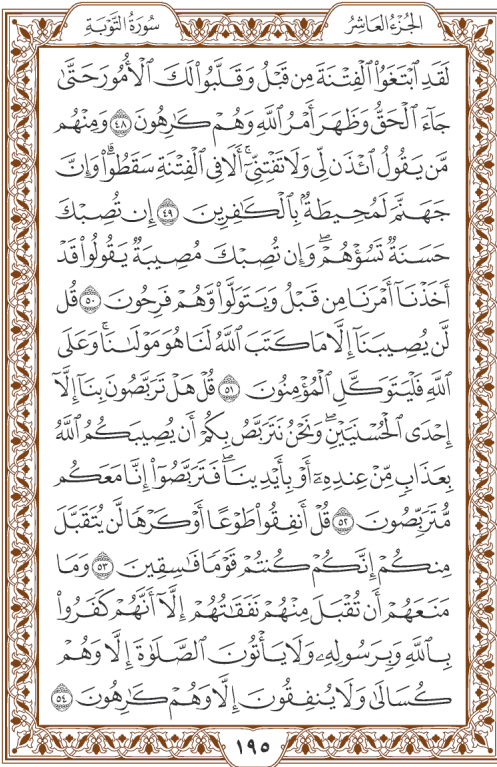 الجُزْءُ العَاشِرُ سُورَةُ التَّوْبَةِ
لَقَدِ ٱبۡتَغَوُاْ ٱلۡفِتۡنَةَ مِن قَبۡلُ وَقَلَّبُواْ لَكَ ٱلۡأُمُورَ حَتَّىٰ
جَآءَ ٱلۡحَقُّ وَظَهَرَ أَمۡرُ ٱللَّهِ وَهُمۡ كَٰرِهُونَ ٤٨ وَمِنۡهُم
مَّن يَقُولُ ٱئۡذَن لِّي وَلَا تَفۡتِنِّيٓۚ أَلَا فِي ٱلۡفِتۡنَةِ سَقَطُواْۗ وَإِنَّ
جَهَنَّمَ لَمُحِيطَةُۢ بِٱلۡكَٰفِرِينَ ٤٩ إِن تُصِبۡكَ
حَسَنَةٞ تَسُؤۡهُمۡۖ وَإِن تُصِبۡكَ مُصِيبَةٞ يَقُولُواْ قَدۡ
أَخَذۡنَآ أَمۡرَنَا مِن قَبۡلُ وَيَتَوَلَّواْ وَّهُمۡ فَرِحُونَ ٥٠ قُل
لَّن يُصِيبَنَآ إِلَّا مَا كَتَبَ ٱللَّهُ لَنَا هُوَ مَوۡلَىٰنَاۚ وَعَلَى
ٱللَّهِ فَلۡيَتَوَكَّلِ ٱلۡمُؤۡمِنُونَ ٥١ قُلۡ هَلۡ تَرَبَّصُونَ بِنَآ إِلَّآ
إِحۡدَى ٱلۡحُسۡنَيَيۡنِۖ وَنَحۡنُ نَتَرَبَّصُ بِكُمۡ أَن يُصِيبَكُمُ ٱللَّهُ
بِعَذَابٖ مِّنۡ عِندِهِۦٓ أَوۡ بِأَيۡدِينَاۖ فَتَرَبَّصُوٓاْ إِنَّا مَعَكُم
مُّتَرَبِّصُونَ ٥٢ قُلۡ أَنفِقُواْ طَوۡعًا أَوۡ كَرۡهٗا لَّن يُتَقَبَّلَ
مِنكُمۡ إِنَّكُمۡ كُنتُمۡ قَوۡمٗا فَٰسِقِينَ ٥٣ وَمَا
مَنَعَهُمۡ أَن تُقۡبَلَ مِنۡهُمۡ نَفَقَٰتُهُمۡ إِلَّآ أَنَّهُمۡ كَفَرُواْ
بِٱللَّهِ وَبِرَسُولِهِۦ وَلَا يَأۡتُونَ ٱلصَّلَوٰةَ إِلَّا وَهُمۡ
كُسَالَىٰ وَلَا يُنفِقُونَ إِلَّا وَهُمۡ كَٰرِهُونَ ٥٤
١٩٥